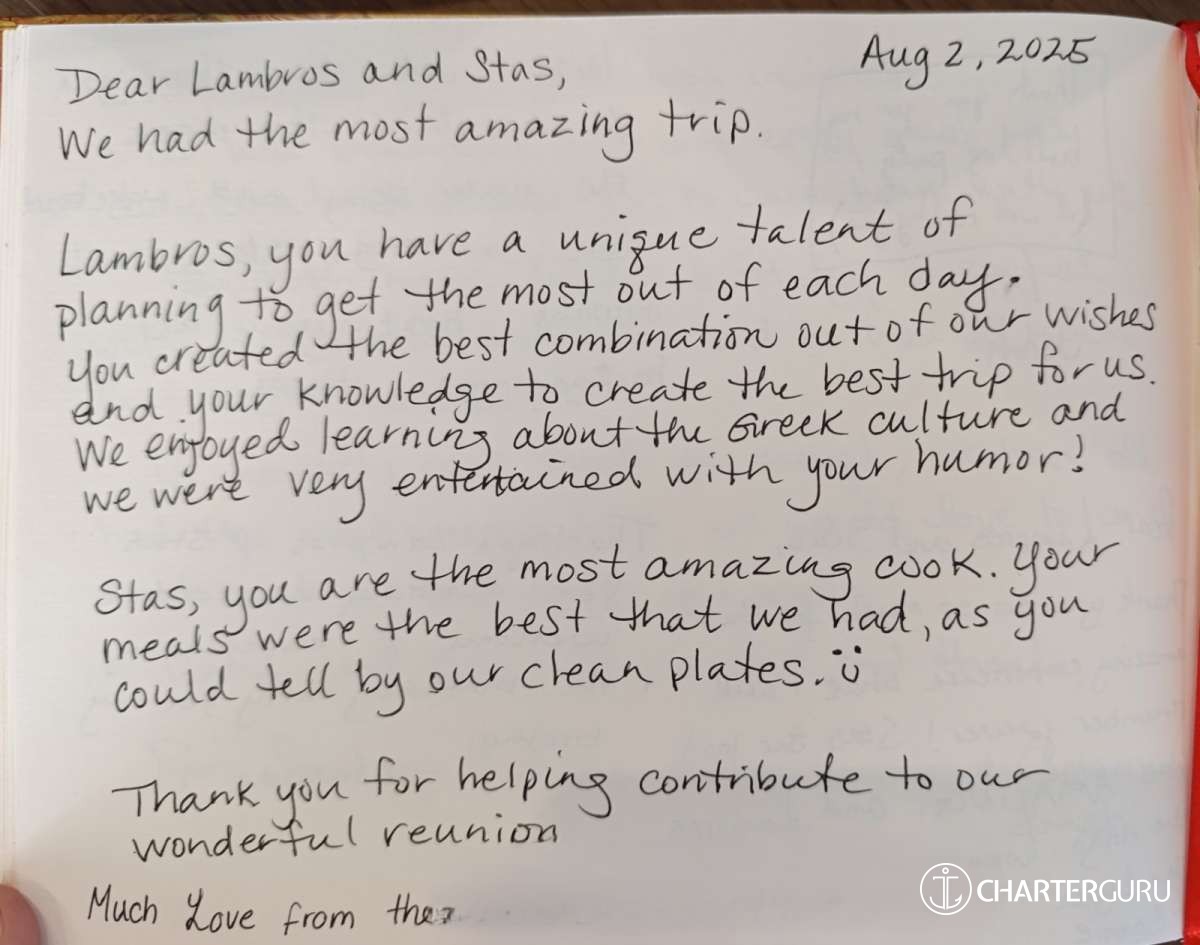 Aug 2, 2025
Dear Lambros and Stas,
We had the most amazing trip.
Lambros, you have a unique talent of
planning to get the most out of each day.
You created the best combination out of our wishes
and your knowledge to create the best trip for us.
We enjoyed learning about the Greek culture and
we were very entertained with your humor!
Stas, you are the most amazing cook. Your
meals were the best that we had, as you
could tell by our clean plates. :)
Thank you for helping contribute to our
wonderful reunion
Much Love from the
CHARTERGURU